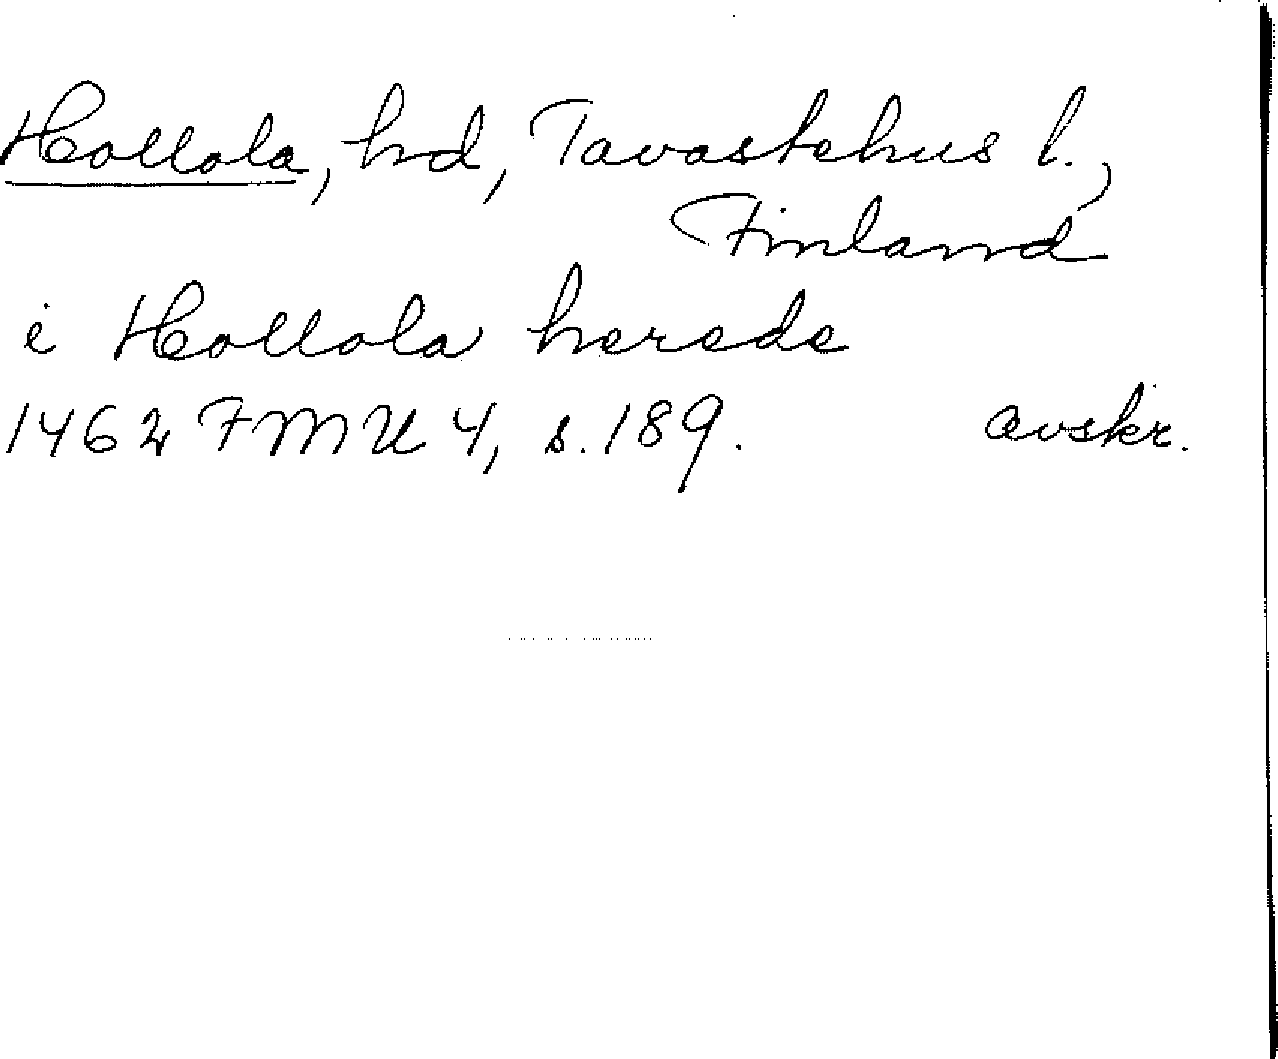 Hollola, hd, Tavastehus l.,
Finland
i Hollola herede
1462 FMU 4, s. 189. avskr.